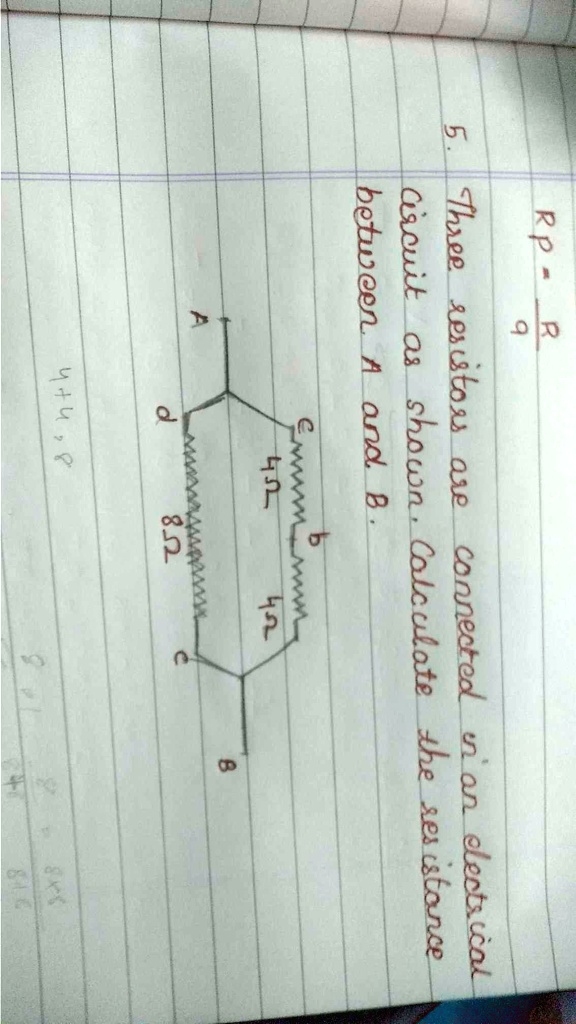 Rp = R/9
5. Three resistors are connected in an electrical
circuit as shown. Calculate the resistance
between A and B.
C b
4Ω 4Ω
A B
d 8Ω c
4+4, 8